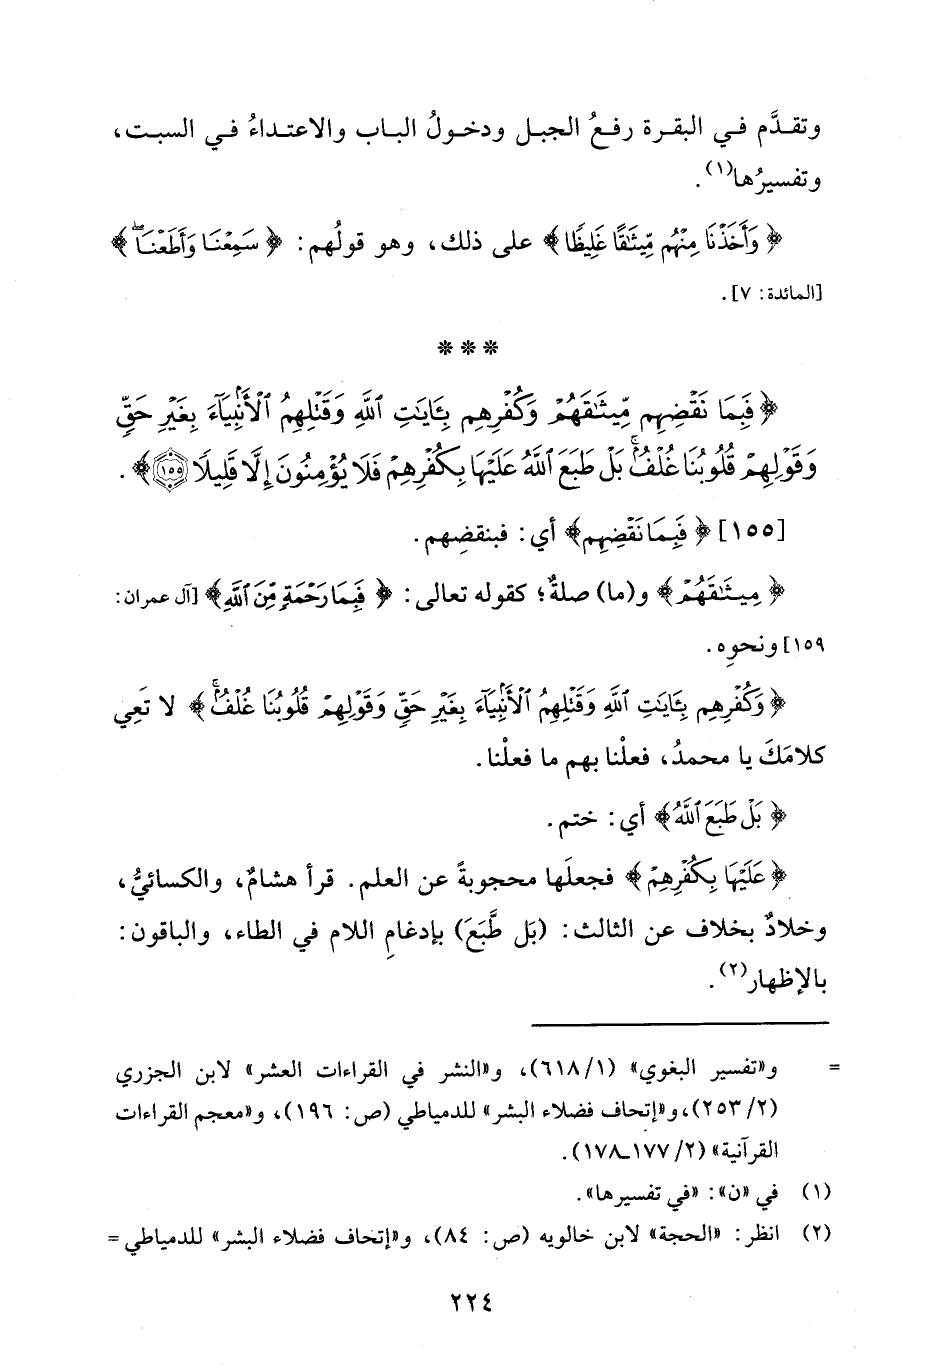 وتقدَّم في البقرة رفعُ الجبل ودخولُ الباب والاعتداءُ في السبت،
وتفسيرُها(١).
﴿وَأَخَذْنَا مِنْهُم مِّيثَٰقًا غَلِيظًا﴾ على ذلك، وهو قولُهم: ﴿سَمِعْنَا وَأَطَعْنَا ۖ﴾
[المائدة: ٧].
* * *
﴿فَبِمَا نَقْضِهِم مِّيثَٰقَهُمْ وَكُفْرِهِم بِـَٔايَٰتِ ٱللَّهِ وَقَتْلِهِمُ ٱلْأَنۢبِيَآءَ بِغَيْرِ حَقٍّ
وَقَوْلِهِمْ قُلُوبُنَا غُلْفٌۢ ۚ بَلْ طَبَعَ ٱللَّهُ عَلَيْهَا بِكُفْرِهِمْ فَلَا يُؤْمِنُونَ إِلَّا قَلِيلًا ١٥٥﴾.
[١٥٥] ﴿فَبِمَا نَقْضِهِم﴾ أي: فبنقضِهم.
﴿مِيثَٰقَهُمْ﴾ و(ما) صلةٌ؛ كقوله تعالى: ﴿فَبِمَا رَحْمَةٍ مِّنَ ٱللَّهِ﴾ [آل عمران:
١٥٩] ونحوِه.
﴿وَكُفْرِهِم بِـَٔايَٰتِ ٱللَّهِ وَقَتْلِهِمُ ٱلْأَنۢبِيَآءَ بِغَيْرِ حَقٍّ وَقَوْلِهِمْ قُلُوبُنَا غُلْفٌۢ ۚ﴾ لا تَعِي
كلامَكَ يا محمدُ، فعلْنا بهم ما فعلْنا.
﴿بَلْ طَبَعَ ٱللَّهُ﴾ أي: ختم.
﴿عَلَيْهَا بِكُفْرِهِمْ﴾ فجعلَها محجوبةً عن العلم. قرأ هشامٌ، والكسائيُّ،
وخلادٌ بخلاف عن الثالث: (بَل طَّبَعَ) بإدغامِ اللام في الطاء، والباقون:
بالإظهار(٢).
= و«تفسير البغوي» (١/ ٦١٨)، و«النشر في القراءات العشر» لابن الجزري
(٢/ ٢٥٣)،و«إتحاف فضلاء البشر» للدمياطي (ص: ١٩٦)، و«معجم القراءات
القرآنية» (٢/ ١٧٧ـ١٧٨).
(١) في «ن»: «في تفسيرها».
(٢) انظر: «الحجة» لابن خالويه (ص: ٨٤)، و«إتحاف فضلاء البشر» للدمياطي =
٢٢٤